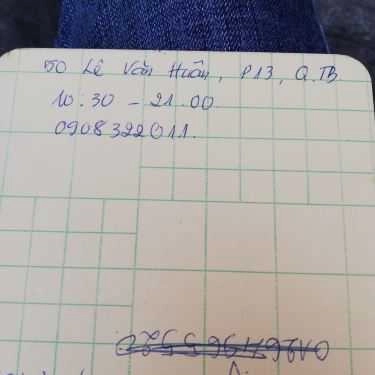 50 Lê Văn Huân, P13, Q.TB
10:30 - 21.00
0908322011.